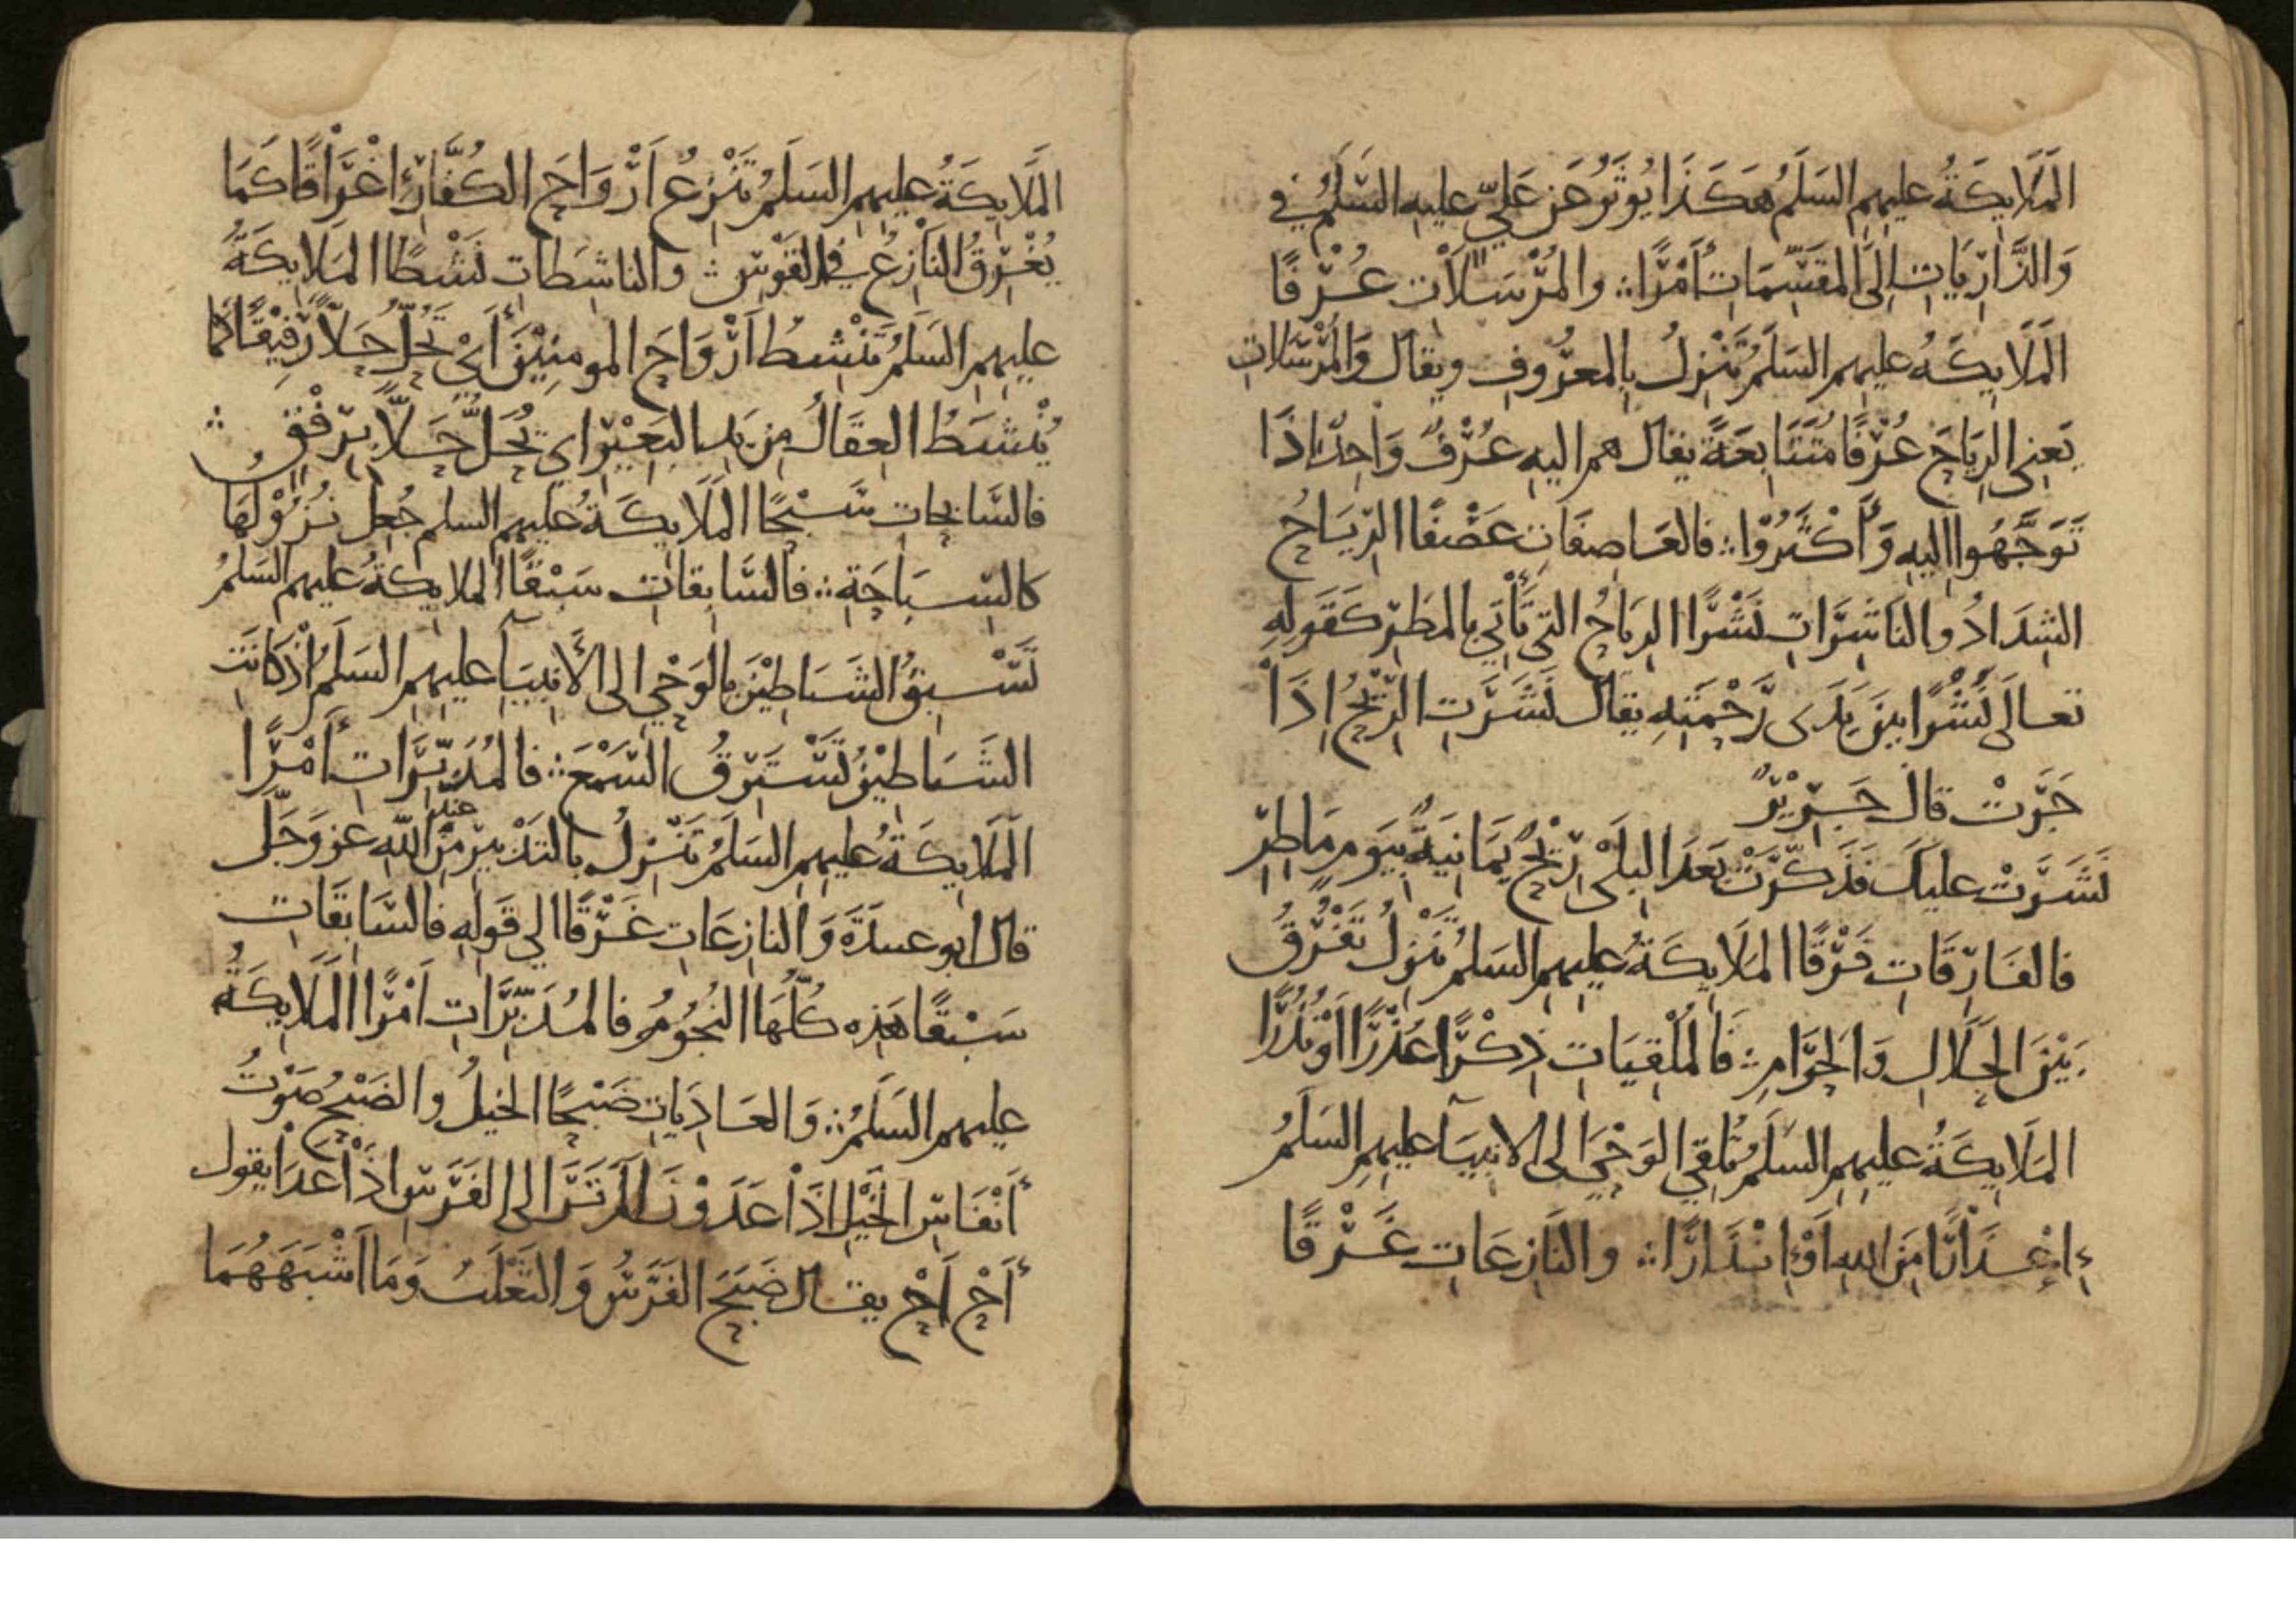 الْمَلَايِكَةُ عليهم السَلَمُ هَكَذَا يُوثَرُ عَن عَلِيّ عليه السَّلَمُ في
وَالذَّارِيَاتِ إِلَى المقَسِّمَاتِ أَمْرًا ∴ والمُرْسَلَاتِ عُرْفًا
الْمَلَايِكَةُ عليهم السَلَمُ تَنْزِلُ بِالمعْرُوفِ ويقال وَالمُرْسَلات
يَعنِي الرِيَاحَ عُرْفًا مُتَتَابِعَةً يقال هم اليهِ عُرْفٌ وَاحِدٌ اذَا
تَوَجَّهُوا اليهِ وَأَكْثَرُوا ∴ فالعَاصِفَاتِ عَصْفًا الرِّيَاحُ
الشِدَادُ والنَاشِرَاتِ نَشْرًا الرِيَاحُ التي تَأْتِي بالمطَرِ كَقَولِهِ
تعالَى نُشْرًا بينَ يَدَى رَحْمَتِهِ يقال نَشَرَتِ الرِّيْحُ إِذَا
جَرَتْ قال جَرِيْرٌ
نَشَرَتْ عليكَ فذَكَّرَتْ بَعدَ البِلَى رِيْحٌ يَمَانِيَةٌ بِيَومٍ مَاطِرِ
فالفَارِقَاتِ فَرْقًا المَلَايِكَةُ عليهم السَلَمُ تَنْزِلُ تَفْرُقُ
بَيْنَ الحَلَالِ وَالحَرَامِ ∴ فَالمُلْقِيَاتِ ذِكْرًا عُذْرًا اَوْ نُذُرًا
المَلَايِكَةُ عليهم السَلَمُ تُلقِي الوَحْيَ الى الانبِيَآ عليهم السَلَمُ
إِعْذَارًا مِنَ اللهِ اَوْ إِنْذَارًا ∴ والنَازِعَاتِ غَرْقًا
المَلَايِكَةُ عليهم السَلَمُ تَنْزِعُ اَرْوَاحَ الكُفَّارِ إِغْرَاقًا كَمَا
يُغْرِقُ النَازِعُ في القَوْسِ ∴ والناشِطَاتِ نَشْطًا المَلَايِكَةُ
عليهم السَلَمُ تَنْشِطُ اَرْوَاحَ المومِنِيْنَ أَيْ تَحُلُّ حَلًّا رَفِيْقًا كَمَا
يُنْشَطُ العِقَالُ مِن يَدِ البَعِيْرِ اي يُحَلُّ حَلًّا بِرِفْقٍ ∴
فالسَّابِحَاتِ سَبْحًا المَلَايِكَةُ عليهم السلم جُعِلَ نُزُوْلُهَا
كالسِّبَاحَةِ ∴ فالسَّابِقاتِ سَبْقًا الملايِكَةُ عليهم السَلَمُ
تَسْبِقُ الشَيَاطِيْنَ بالوَحْيِ الى الأَنبِيَآ عليهم السَلَمُ اذْ كانَت
الشَيَاطِيْنُ تَسْتَرِقُ السَّمْعَ ∴ فالمُدَبِّرَاتِ أَمْرًا
المَلَايِكَةُ عليهم السَلَمُ تَنْزِلُ بالتَدْبِيرِ مِنْ عند اللهِ عز وَجَلَّ
قال ابو عبيدَةَ وَالنازِعَاتِ غَرْقًا الي قَولِهِ فالسَّابِقَاتِ
سَبْقًا هَذِه كُلُّهَا النُجُوْمُ فالمُدَبِّرَاتِ اَمْرًا المَلَايِكَةُ
عليهم السَلَمُ ∴ وَالعَادِيَاتِ ضَبْحًا الخيلُ والضَبْحُ صَوْتُ
أَنْفَاسِ الخَيْلِ اذَا عَدَوْنَ اَلَم تَرَ الى الفَرَسِ اذَا عَدَا يقول
أَحْ اَحْ يقال ضَبَحَ الفَرَسُ وَالثَعْلَبُ وَمَا اَشْبَهَهُمَا